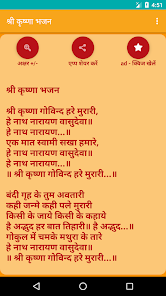 4:51
श्री कृष्णा भजन
अक्षर +/-
एप्प शेयर करें
ad - क्विज खेलें
श्री कृष्णा भजन
श्री कृष्णा गोविन्द हरे मुरारी,
हे नाथ नारायण वासुदेवा॥
हे नाथ नारायण...॥
एक मात स्वामी सखा हमारे,
हे नाथ नारायण वासुदेवा॥
हे नाथ नारायण...॥
॥ श्री कृष्णा गोविन्द हरे मुरारी...॥
बंदी गृह के तुम अवतारी
कही जन्मे कही पले मुरारी
किसी के जाये किसी के कहाये
है अद्भुद हर बात तिहारी॥ है अद्भुद...॥
गोकुल में चमके मथुरा के तारे
हे नाथ नारायण वासुदेवा॥
॥ श्री कृष्णा गोविन्द हरे मुरारी...॥